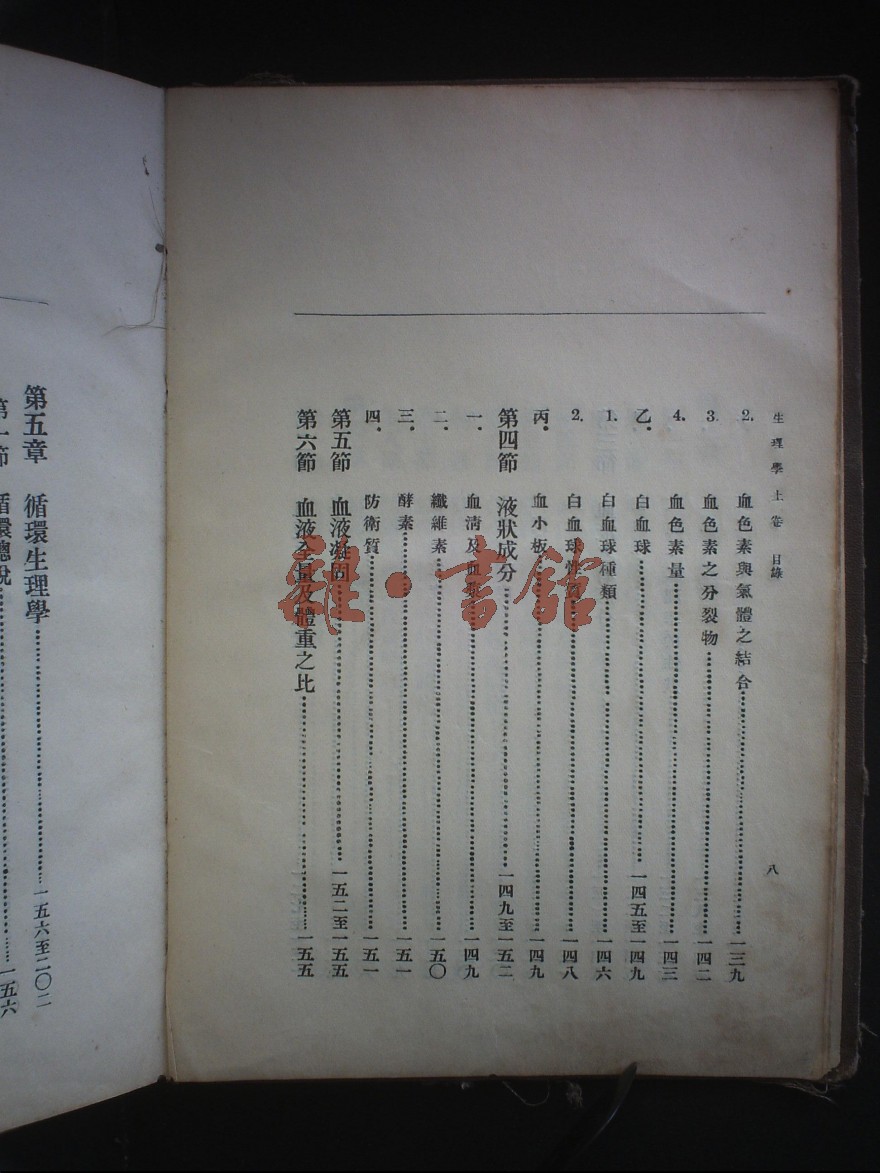 生理學上卷 目錄 八
2. 血色素與氣體之結合 一三九
3. 血色素之分裂物 一四二
4. 血色素量 一四三
乙. 白血球 一四五至一四九
1. 白血球種類 一四六
2. 白血球性質 一四八
丙. 血小板 一四九
第四節 液狀成分 一四九至一五二
一. 血清及血漿 一四九
二. 纖維素 一五〇
三. 酵素 一五一
四. 防衛質 一五一
第五節 血液凝固 一五二至一五五
第六節 血液全量及體重之比 一五五
第五章 循環生理學 一五六至二〇二
第一節 循環總說 一五六
雜·書館